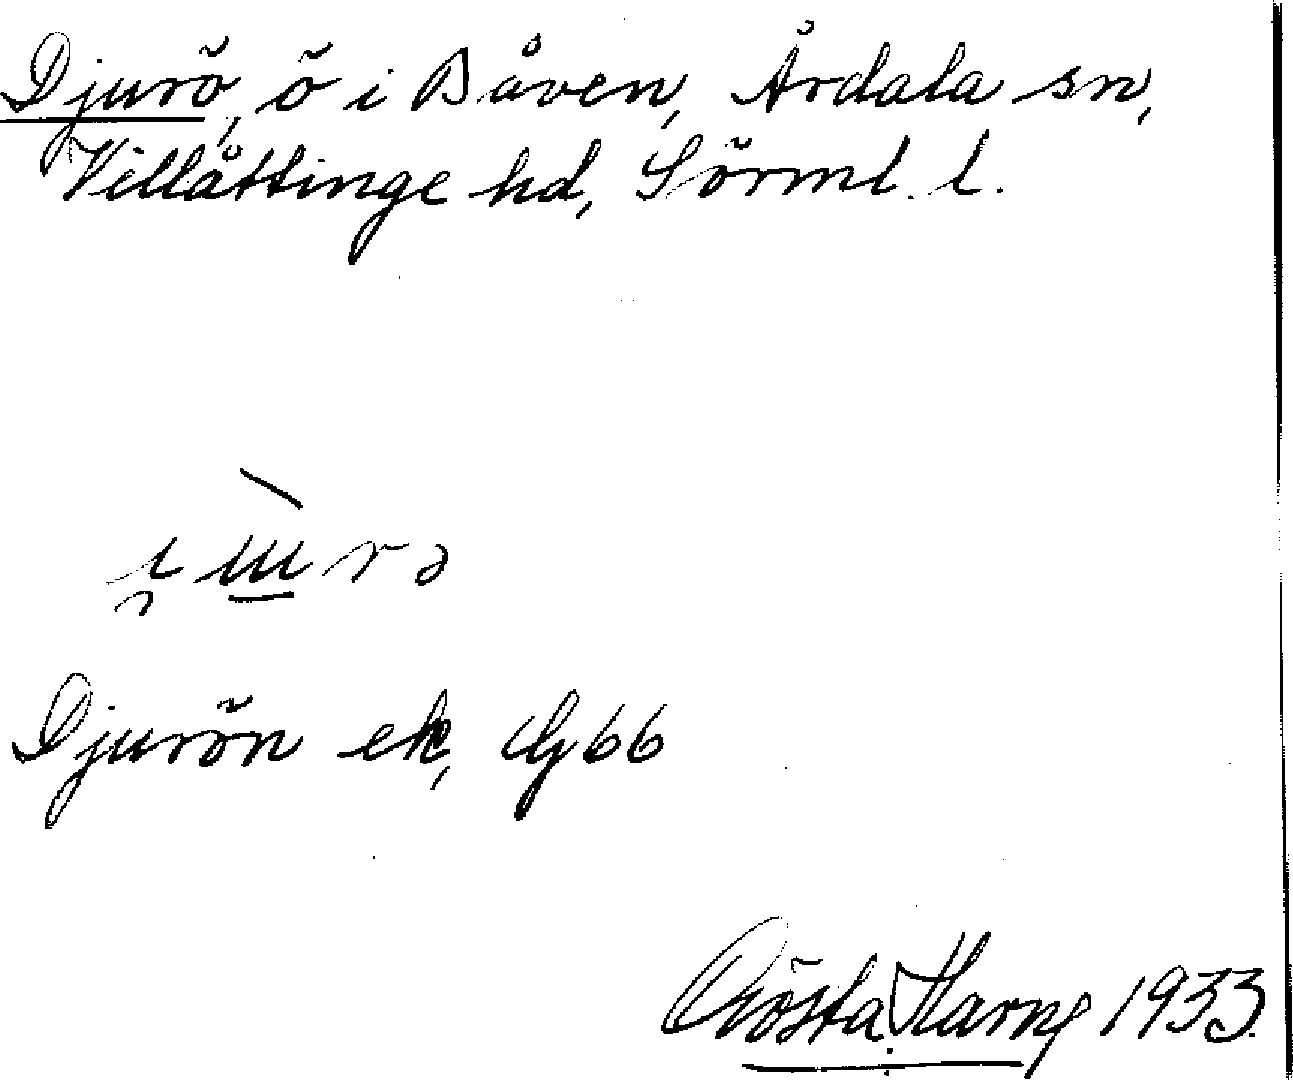 Djurö, ö i Båven, Årdala sn,
Villåttinge hd, Sörml. l.
Djurön ek, G 66
Gösta Harng 1933.